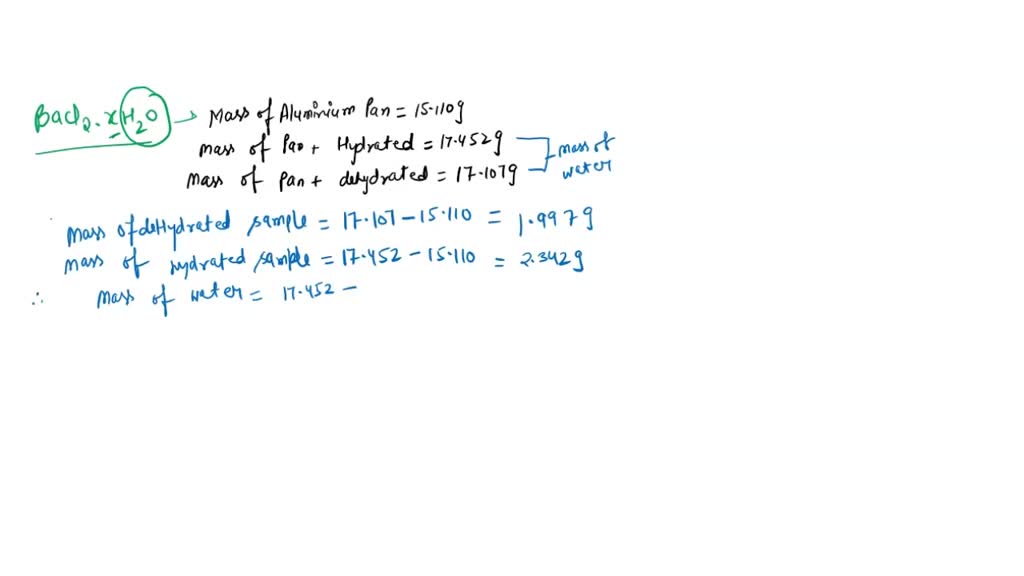 BaCl2.xH2O → Mass of Aluminium Pan = 15.110g
Mass of Pan + Hydrated = 17.452g
Mass of Pan + dehydrated = 17.107g
Mass of water
Mass of deHydrated sample = 17.107 - 15.110 = 1.997g
Mass of Hydrated sample = 17.452 - 15.110 = 2.342g
∴ Mass of water = 17.452 -